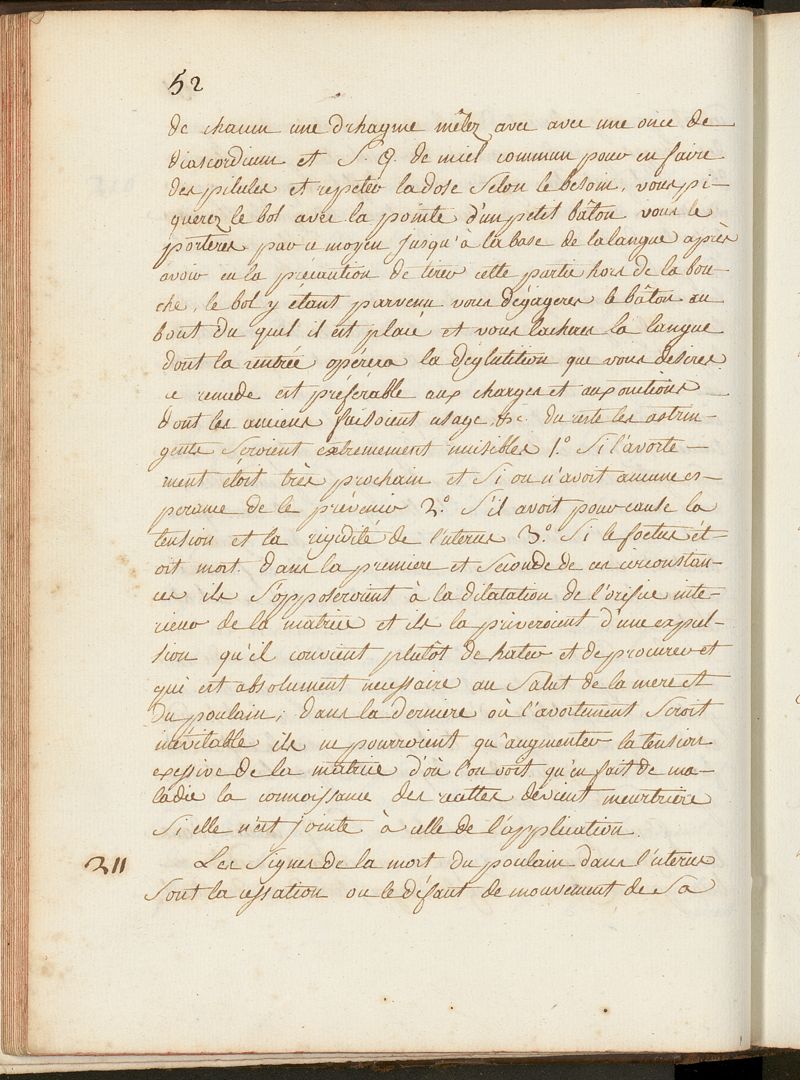 52
de chacun une Drhagme mêlez avec avec une once de
diascordium et S. Q. de miel commun pour en faire
des pilules et repeter la dose Selon le besoin, vous pi-
querez le bol avec la pointe d'un petit bâton vous le
porterez par ce moyen jusqu'à la base de la langue après
avoir eu la précaution de tirer cette partie hors de la bou-
che, le bol y étant parvenu vous dégagerez le bâton au
bout du quel il est placé et vous lacherez la langue
dont la rentrée opérera la déglutition que vous desirez
ce remede est préférable aux charges et aux onctions
dont les anciens faisoient usage, &c. du reste les astrin-
gents Seroient extremement nuisibles 1.º Si l'avorte-
ment étoit très prochain et Si on n'avoit aucune es-
perance de le prévenir 2.º S'il avoit pour cause la
tension et la rigidité de l'uterus 3.º Si le foetus ét-
oit mort. dans la premiere et Seconde de ces circonstan-
ces ils S'opposeroient à la dilatation de l'orifice inte-
rieur de la matrice et ils la priveroient d'une expul-
sion qu'il convient plutôt de hâter et de procurer et
qui est absolument necessaire au Salut de la mere et
du poulain; dans la derniere où l'avortement Seroit
inévitable ils ne pourroient qu'augmenter la tension
excessive de la matrice d'où l'on voit qu'en fait de ma-
ladie la connoissance des recettes devient meurtriere
Si elle n'est jointe à celle de l'application.
211 Les Signes de la mort du poulain dans l'uterus
Sont la cessation ou le défaut de mouvement de Sa